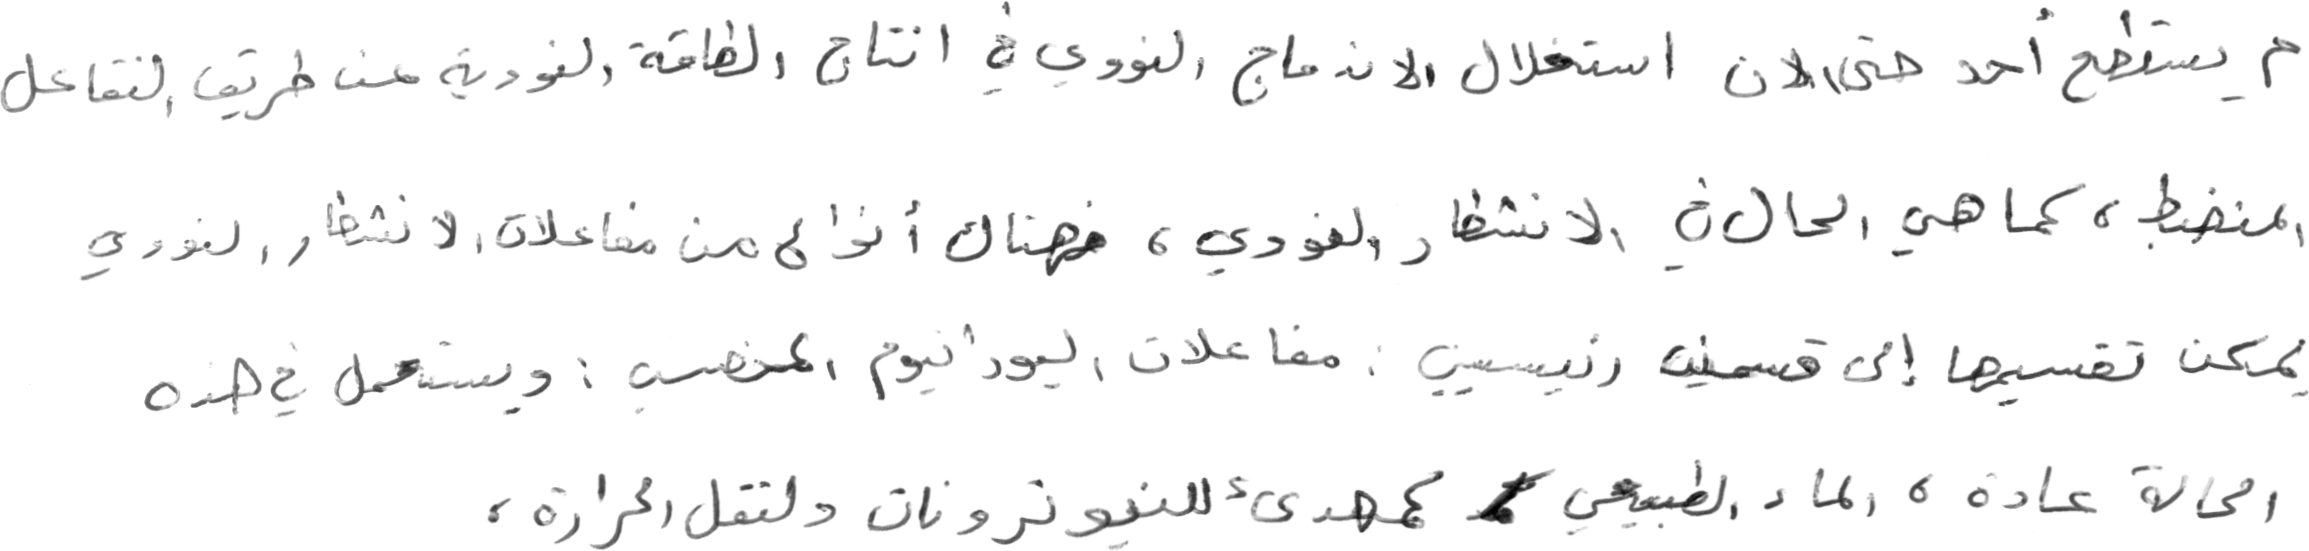 لم يستطع أحد حتى الان استغلال الاندماج النووي في انتاج الطاقة النووية عن طريق التفاعل
المنضبط، كما هي الحال في الانشطار النووي، فهناك أنواع من مفاعلات الانشطار النووي
يمكن تقسيمها إلى قسمين رئيسيين: مفاعلات اليورانيوم المخصب: ويستعمل في هذه
الحالة عادة، الماء الطبيعي كمهدئ للنيوترونات ولنقل الحرارة،